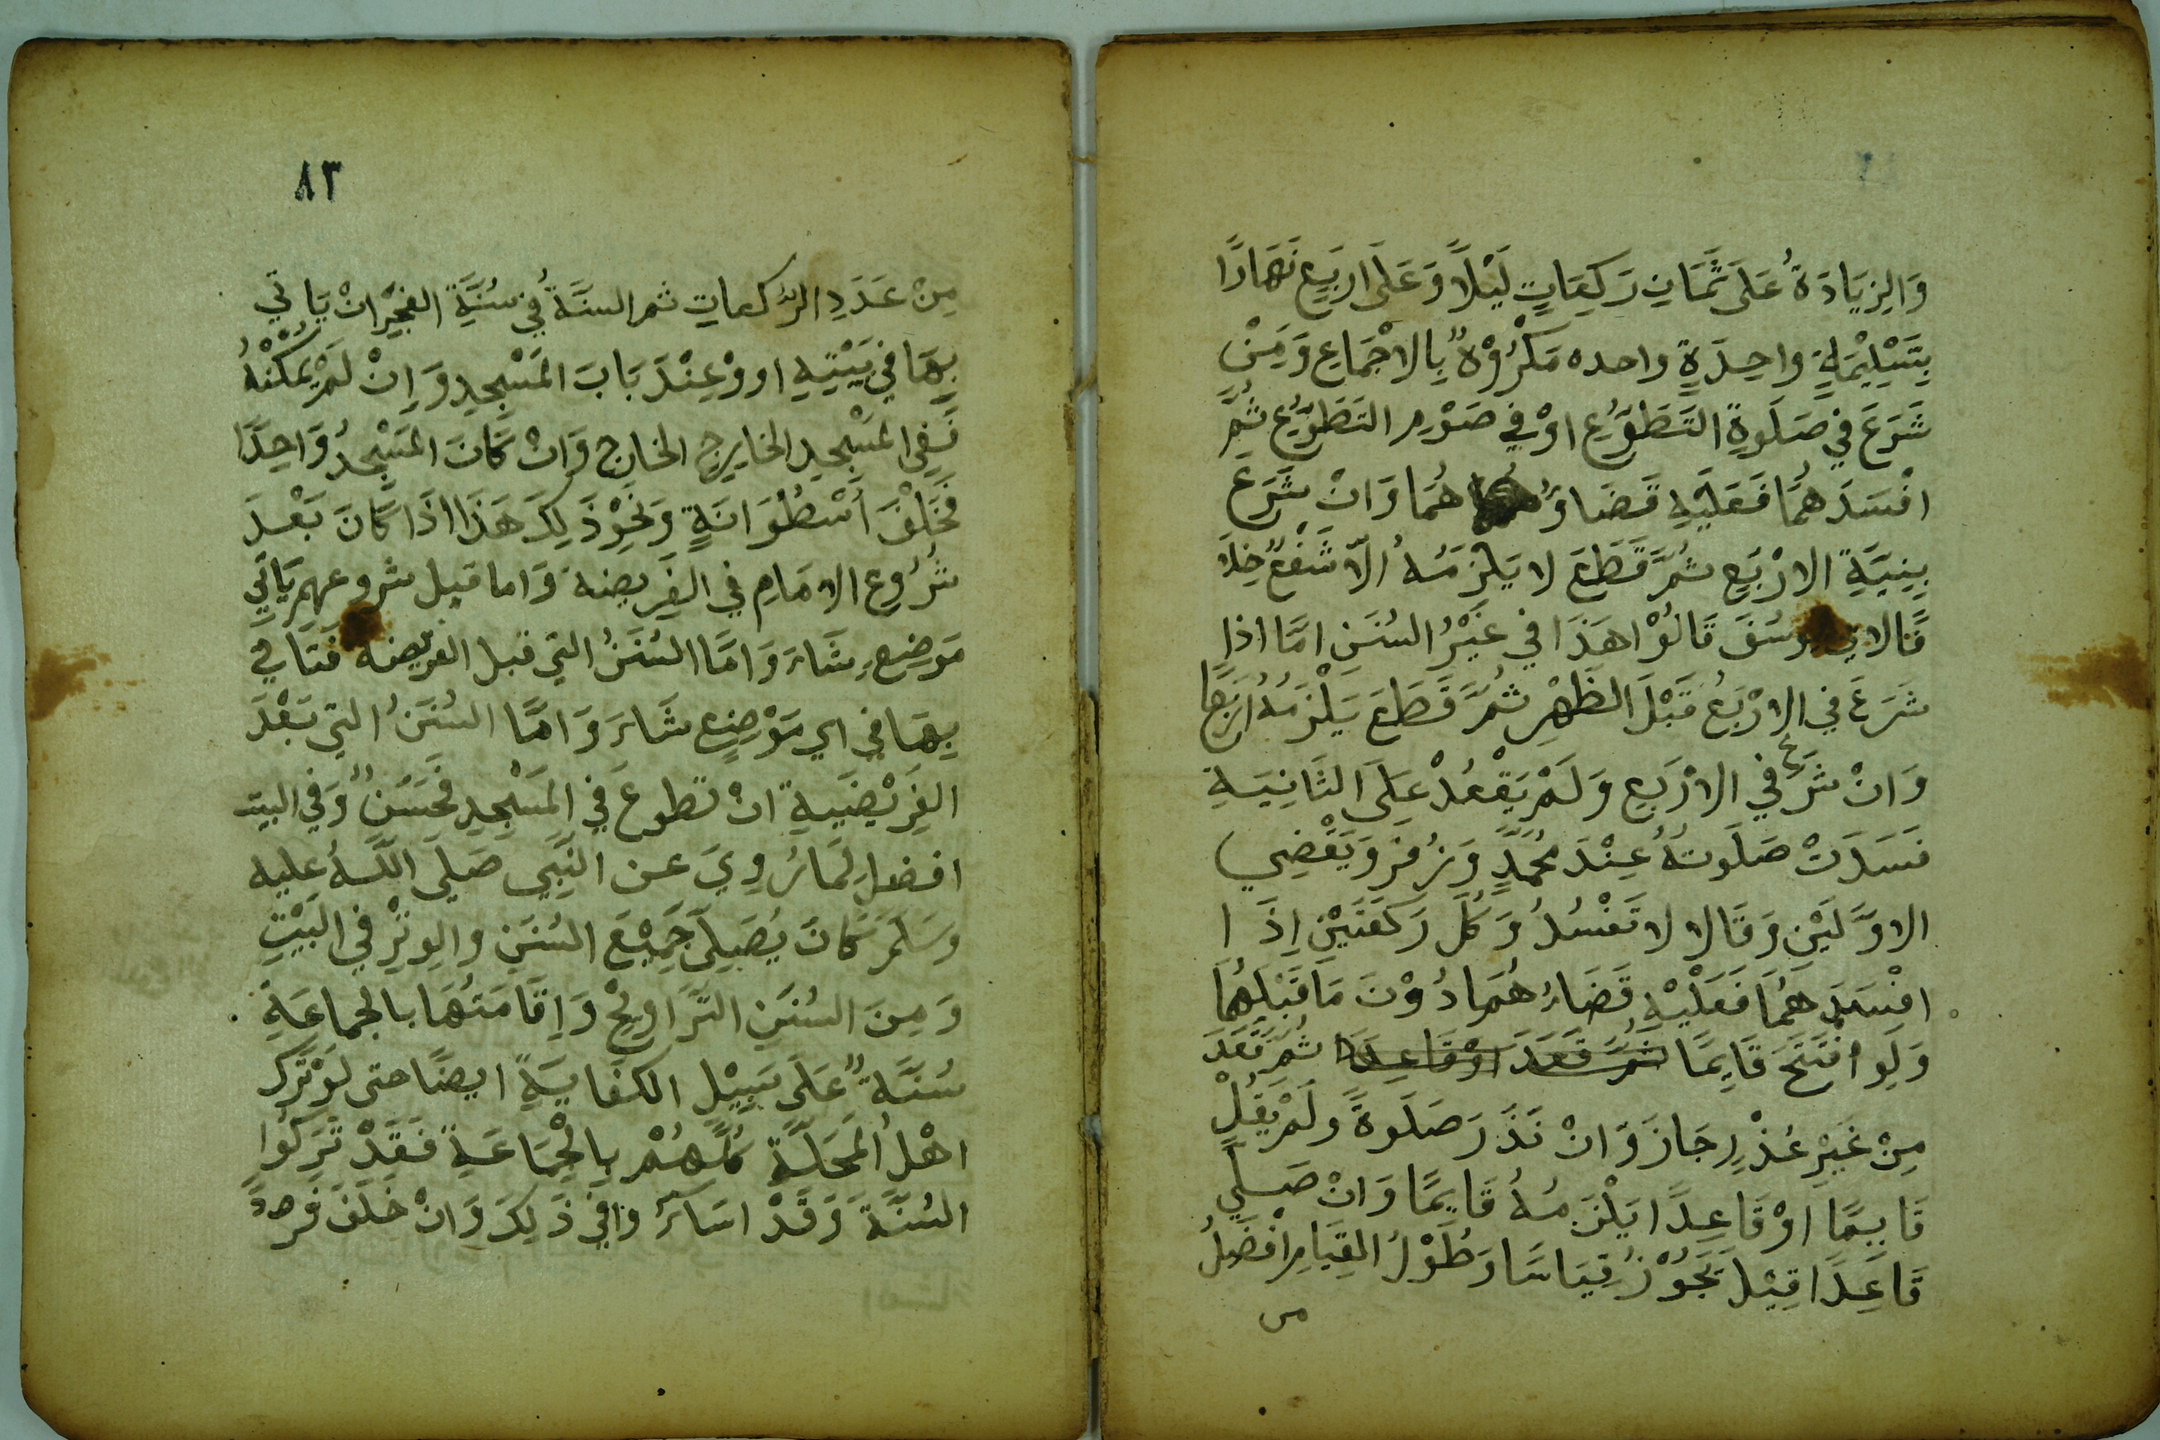 وَالزِيَادَةُ عَلَى ثَمَانِ رَكِعَاتٍ لَيْلًا وَعَلَى اربَعٍ نَهَارًا
بِتَسْلِيْمَةٍ واحِدَةٍ واحده مَكْرُوْهٌ بِالاجْمَاعِ وَمَنْ
شَرَعَ في صَلَوةِ التَطَوُّعِ اوْ فِي صَوْمِ التَطَوُّعِ ثُمَّ
افْسَدَ هُمَا فَعَلَيْهِ قَضَاؤُ هُمَا وَانْ شَرَع
بِنِيَّةِ الارْبَعِ ثُمَّ قَطَعَ لا يَلْزَمُهُ الّا شَفْعٌ خِلَا
فًا لابي يوسُفَ قَالُوْا هَذَا في غَيْرُ السُنَنِ امَّا اذا
شَرَعَ في الارْبَعُ قَبْلَ الظُهْرِ ثُمَّ قَطَعَ يَلْزَمُهُ اَرْبَعًا
وَانْ شَرَعَ في الارْبَعِ وَلَمْ يَقْعُدْ عَلَى الثَانِيَةِ
فسَدَتْ صَلَوتُهُ عِنْدَ مُحَمَّدٍ وَزُفَرَ وَيَقْضِي
الاوَّلَيْنِ وَقَالا لا تَفْسُدُ وَكُلُّ رَكعَتَيْنِ اِذَا
افْسَدَ هُمَا فَعَلَيْهِ قَضَاءُ هُمَا دُوْنَ مَا قَبْلَهُمَا
وَلَوِ افْتَتَحَ قَايِمًا ثُمَّ قَعَدَ اوْ قَاعِدًا ثُمَّ قَعَدَ
مِنْ غَيْرِ عُذْرٍ جَازَ وَانْ نَذَرَ صَلَوةً وَلَمْ يَقُلْ
قَايِمًا اوْ قَاعِدًا يَلْزَمُهُ قَايِمًا وَانْ صَلَّي
قَاعِدًا قِيْلَ يَجُوْزُ قِيَاسًا وَطُوْلُ القِيَامِ افْضَلُ
من
٨٣
مِنْ عَدَدِ الرَّكعاتِ ثم السنَّةُ في سُنَّةِ الفجْرِ انْ يَاتي
بِهَا في بَيْتِهِ او وْعِنْدَ بَابَ المَسْجِدِ وَاِنْ لَمْ يُمْكُنْهُ
فَفِي المَسْجِدِ الخارِجِ الخارج وَانْ كَانَ المَسْجِدُ وَاحِدًا
فَخَلْفَ اُسْطُوَانَةٍ وَنَحْوِ ذَلِكَ هَذَا اذَا كَانَ بَعْدَ
شُرُوعِ الامَامِ في الفَرِيضة وَاما قبل شروعهم يَاتي
مَوضِعٍ شَاءَ وَامَّا السُنَنُ التي قبل الفريضة فَتَا في
بِهَا في اي مَوْضِعٍ شَاءَ وَامَّا السُنَنُ التي بَعْدَ
الفَرِيْضَيةِ انْ تطوع في المَسْجِدِ فَحَسُنٌ وَفي البيت
افضل لِمَا رُوِيَ عن النَبِي صَلَى اللَّهُ عليه
وَسَلَّمَ كَانَ يُصَلِّي جَمِيْعَ السُنَنِ والوِتْرِ في البَيْتِ
وَمِنَ السُنَنِ التَرَاوِيْحُ وَاِقَامَتُهَا بالجماعَةِ
سُنَّةٌ عَلَى سَبِيْلِ الكفَايَةِ ايضًا حتى لَوْ تَرَكَ
اهْلُ المَحَلَّةِ كُلُّهُمْ بِالْجَمَاعَةِ فَقَدْ تَرَكُوا
السُنَّةَ وَقَدْ اسَاءَ وافي ذَلِكَ وَانْ خَلَفَ